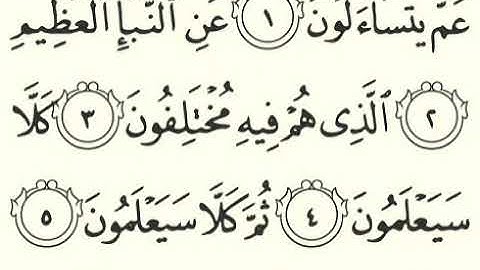 عَمَّ يَتَسَاءَلُونَ ١ عَنِ النَّبَإِ الْعَظِيمِ
٢ الَّذِى هُمْ فِيهِ مُخْتَلِفُونَ ٣ كَلَّا
سَيَعْلَمُونَ ٤ ثُمَّ كَلَّا سَيَعْلَمُونَ ٥